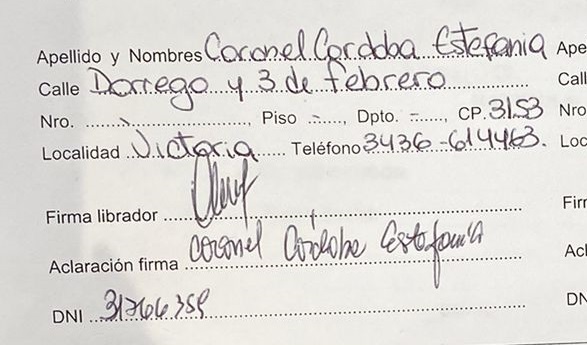 Apellido y Nombres Coronel Cordoba Estefania Ape
Calle Dorrego y 3 de febrero Call
Nro. ........ - ........, Piso .-....., Dpto. .-....., CP. 3153 Nro
Localidad Victoria Teléfono 3436-614463. Loc
Firma librador ........ Firr
Aclaración firma Coronel Cordoba Estefania Acl
DNI 31766359 DN